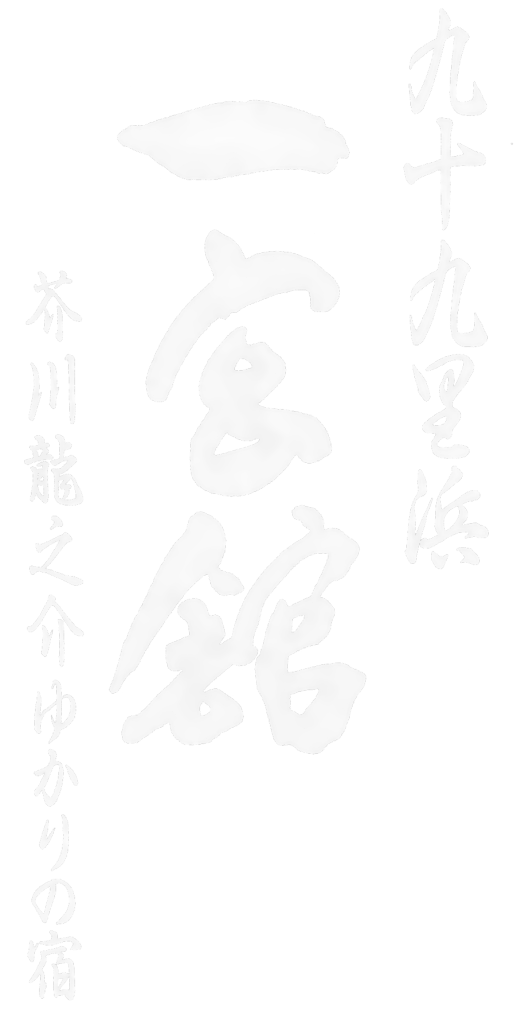 九十九里浜
一宮館
芥川龍之介ゆかりの宿